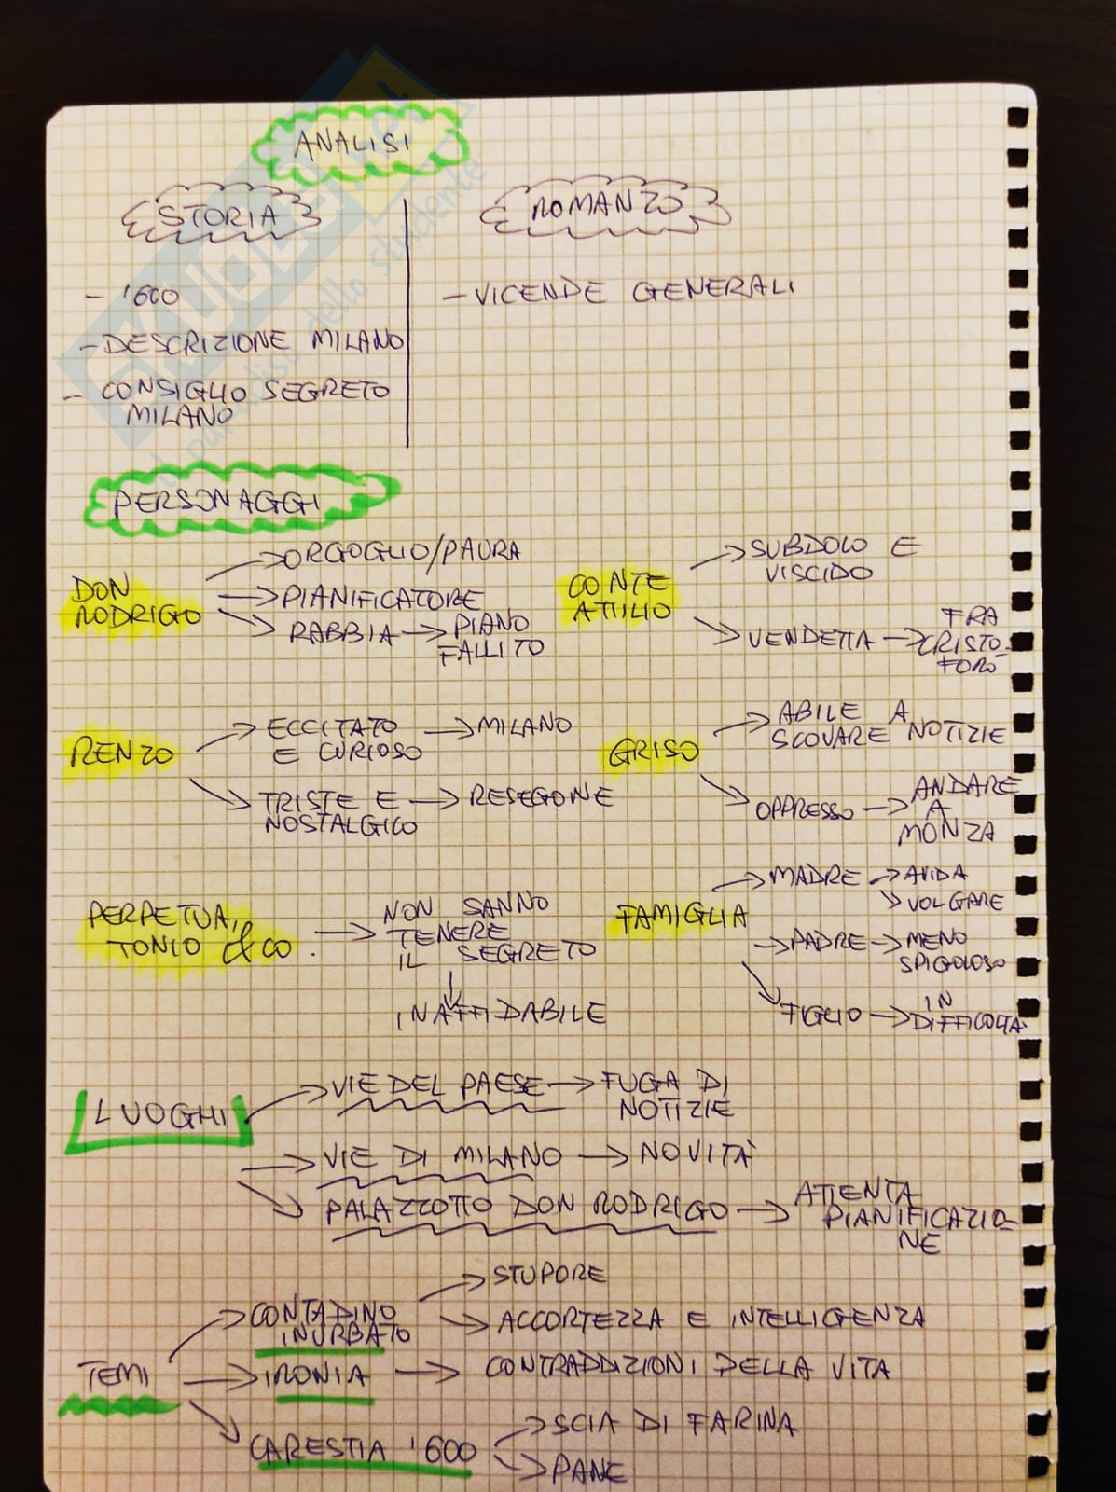 ANALISI
STORIA
ROMANZO
- '600
- DESCRIZIONE MILANO
- CONSIGLIO SEGRETO
MILANO
- VICENDE GENERALI
PERSONAGGI
DON
RODRIGO
→ ORGOGLIO/PAURA
→ PIANIFICATORE
→ RABBIA → PIANO
FALLITO
CONTE
ATTILIO
→ SUBDOLO E
VISCIDO
→ VENDETTA → FRA
CRISTO-
FORO
RENZO
→ ECCITATO
E CURIOSO → MILANO
→ TRISTE E
NOSTALGICO → RESEGONE
GRISO
→ ABILE A
SCOVARE NOTIZIE
OPPRESSO → ANDARE
A
MONZA
PERPETUA,
TONIO & CO.
→ NON SANNO
TENERE
IL SEGRETO
↓
INAFFIDABILE
FAMIGLIA
→ MADRE → AVIDA
→ VOLGARE
→ PADRE → MENO
SPIGOLOSO
→ FIGLIO → IN
DIFFICOLTÀ
LUOGHI
→ VIE DEL PAESE → FUGA DI
NOTIZIE
→ VIE DI MILANO → NOVITÀ
→ PALAZZOTTO DON RODRIGO → ATTENTA
PIANIFICAZIO-
NE
TEMI
→ CONTADINO
INURBATO
→ STUPORE
→ ACCORTEZZA E INTELLIGENZA
→ IRONIA → CONTRADDIZIONI DELLA VITA
→ CARESTIA '600
→ SCIA DI FARINA
→ PANE